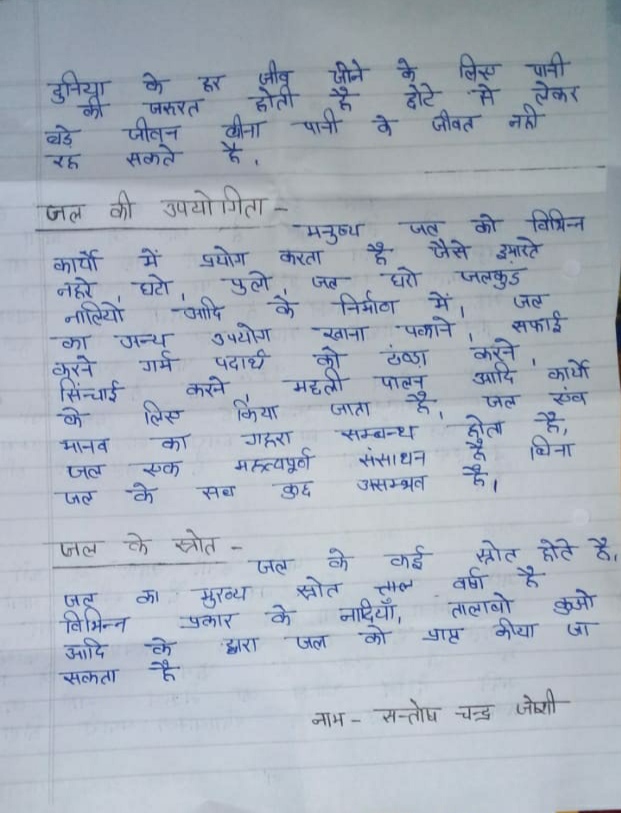 दुनिया के हर जीव जीने के लिए पानी
की जरुरत होती है छोटे से लेकर
बड़े जीवन बीना पानी के जीवत नही
रह सकते है,
जल की उपयोगिता -
मनुष्य जल को विभिन्न
कार्यो में प्रयोग करता है जैसे इमारते
नहरे, घटो, पुलो, जल घरो जलकुड
नालियो आदि के निर्माण में, जल
का अन्य उपयोग खाना पकाने, सफाई
करने गर्म पदार्थ को ठण्डा करने,
सिंन्चाई करने, मछली पालन आदि कार्यो
के लिए किया जाता है, जल एंव
मानव का गहरा सम्बन्ध होता है,
जल एक महत्वपूर्ण संसाधन है बिना
जल के सब कुछ असम्भव है,
जल के स्त्रोत -
जल के कई स्त्रोत होते है,
जल का मुख्य स्त्रोत वर्षा है
विभिन्न प्रकार के नादियाँ, तालाबो कुओ
आदि के द्वारा जल को प्राप्त कीया जा
सकता है
नाम - सन्तोष चन्द्र जोशी